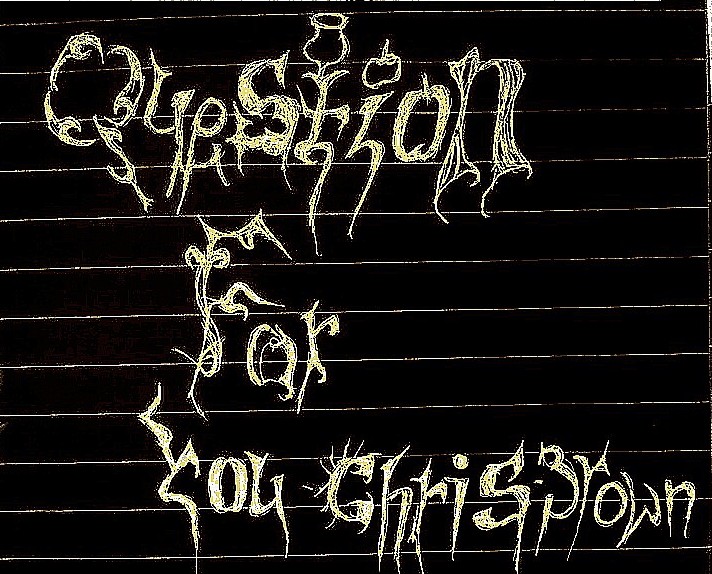 Question
For
You ChrisBrown